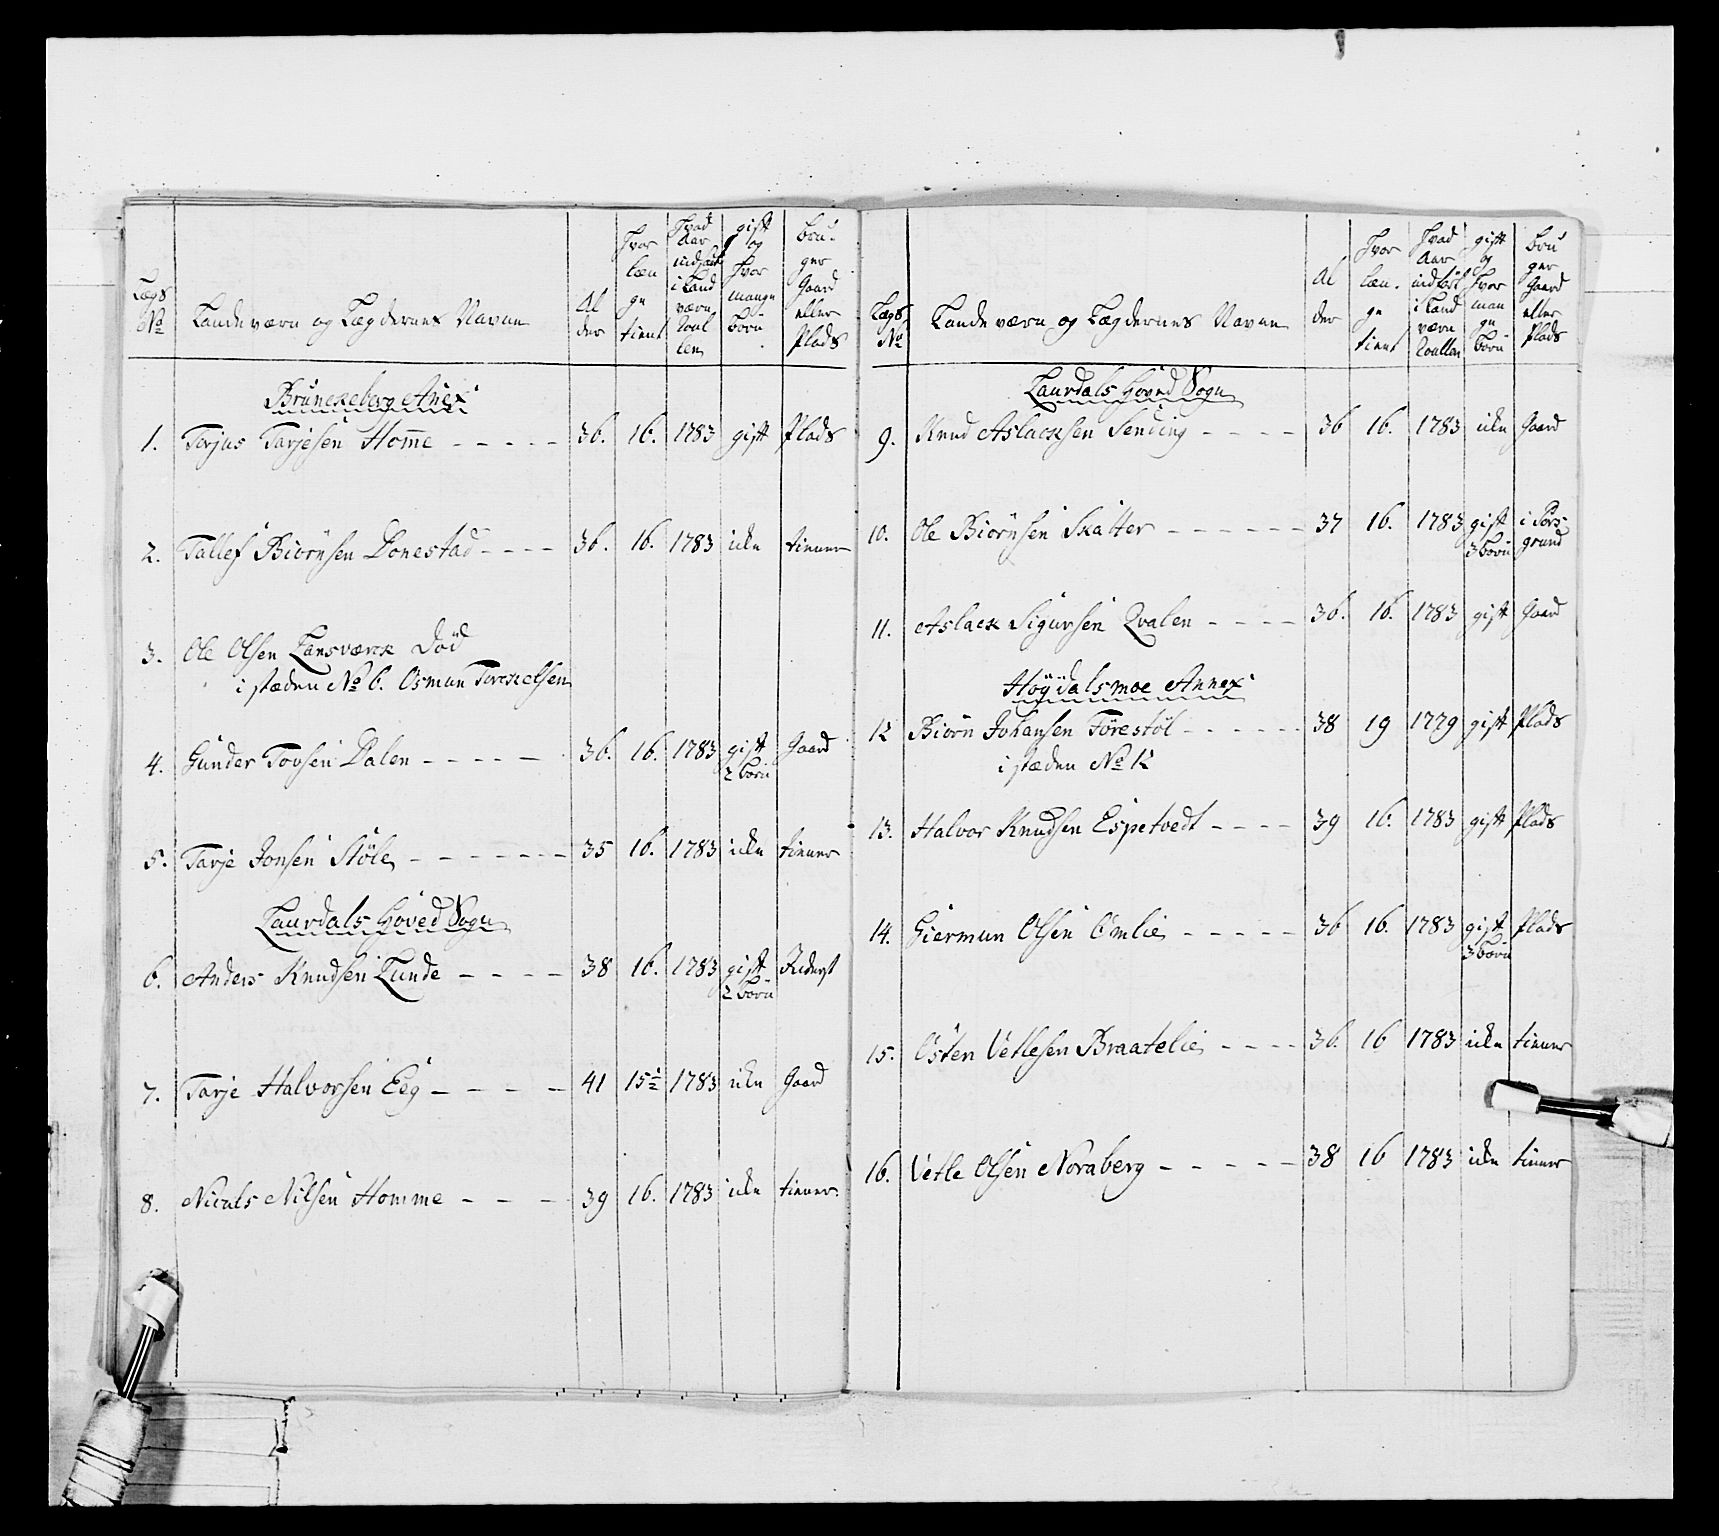 Lægs No
Landeværn og Lægdernes Navne
Alder
Hvor længe tient
Hvad Aar indført i Landværn Roullen
gift og Hvor mange børn
bruger Gaard eller Plads
Brunekeberg Anex
1. Torjus Tarjesen Homme - - - - - 36. 16. 1783 gift Plads
2. Tallef Biørnsen Donestad - - - - 36. 16. 1783 icke tiener
3. Ole Olsen Lansværck død
i stæden No 6. Osmun Torckelsen
4. Gunder Tovsen Dalen - - - - - 36. 16. 1783 gift Gaard
2 børn
5. Tarje Jonsen Støle - - - - - - - 35 16. 1783 icke tiener
Laurdals Hoved Sogn
6. Anders Knudsen Lunde - - - - 38 16. 1783 gift Inderst
2 børn
7. Tarje Halvorsen Eeg - - - - 41 15½ 1783 icke Gaard
8. Niculs Nilsen Homme - - - - 39 16. 1783 icke tiener.
Lægs No
Landeværn og Lægdernes Navne
Alder
Hvor længe tient
Hvad Aar indført i Landværn Roullen
gift og Hvor mange børn
bruger Gaard eller Plads
Laurdals Hoved Sogn
9. Knud Aslacksen Sending - - - - 36 16. 1783 icke Gaard
10. Ole Biørnsen Skatter - - - - - - 37 16. 1783 gift i Pors-
3 børn grund
11. Aslack Sigursen Qvalen - - - - 36. 16. 1783 gift Gaard
Høydalsmoe Annex
12 Biørn Johansen Førestøl - - - - - - 38 19 1779 gift Plads
i stæden No 12
13. Halvor Knudsen Espetvedt - - - - 39 16. 1783 gift Plads
14. Giermun Olsen Omlie - - - - - 36 16. 1783 gift Plads
3 børn
15. Østen Vetlesen Braatelie - - - - 36. 16 1783 icke tiener
16. Vetle Olsen Noraberg - - - - - 38 16 1783 icke tiener